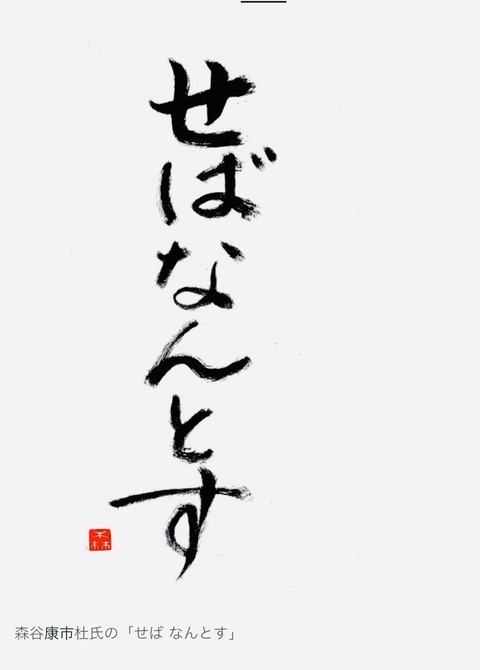 せばなんとす
森
森谷康市杜氏の「せば なんとす」